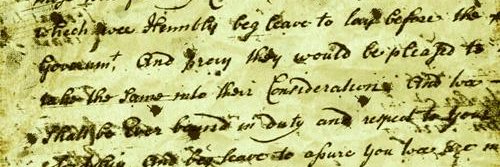 which wee Humbly beg leave to lay before the
Governmt. And pray they would be pleasd to
take the Same into their Consideration And wee
Shall be Ever bound in duty and respect to Your
And beg leave to assure You wee are